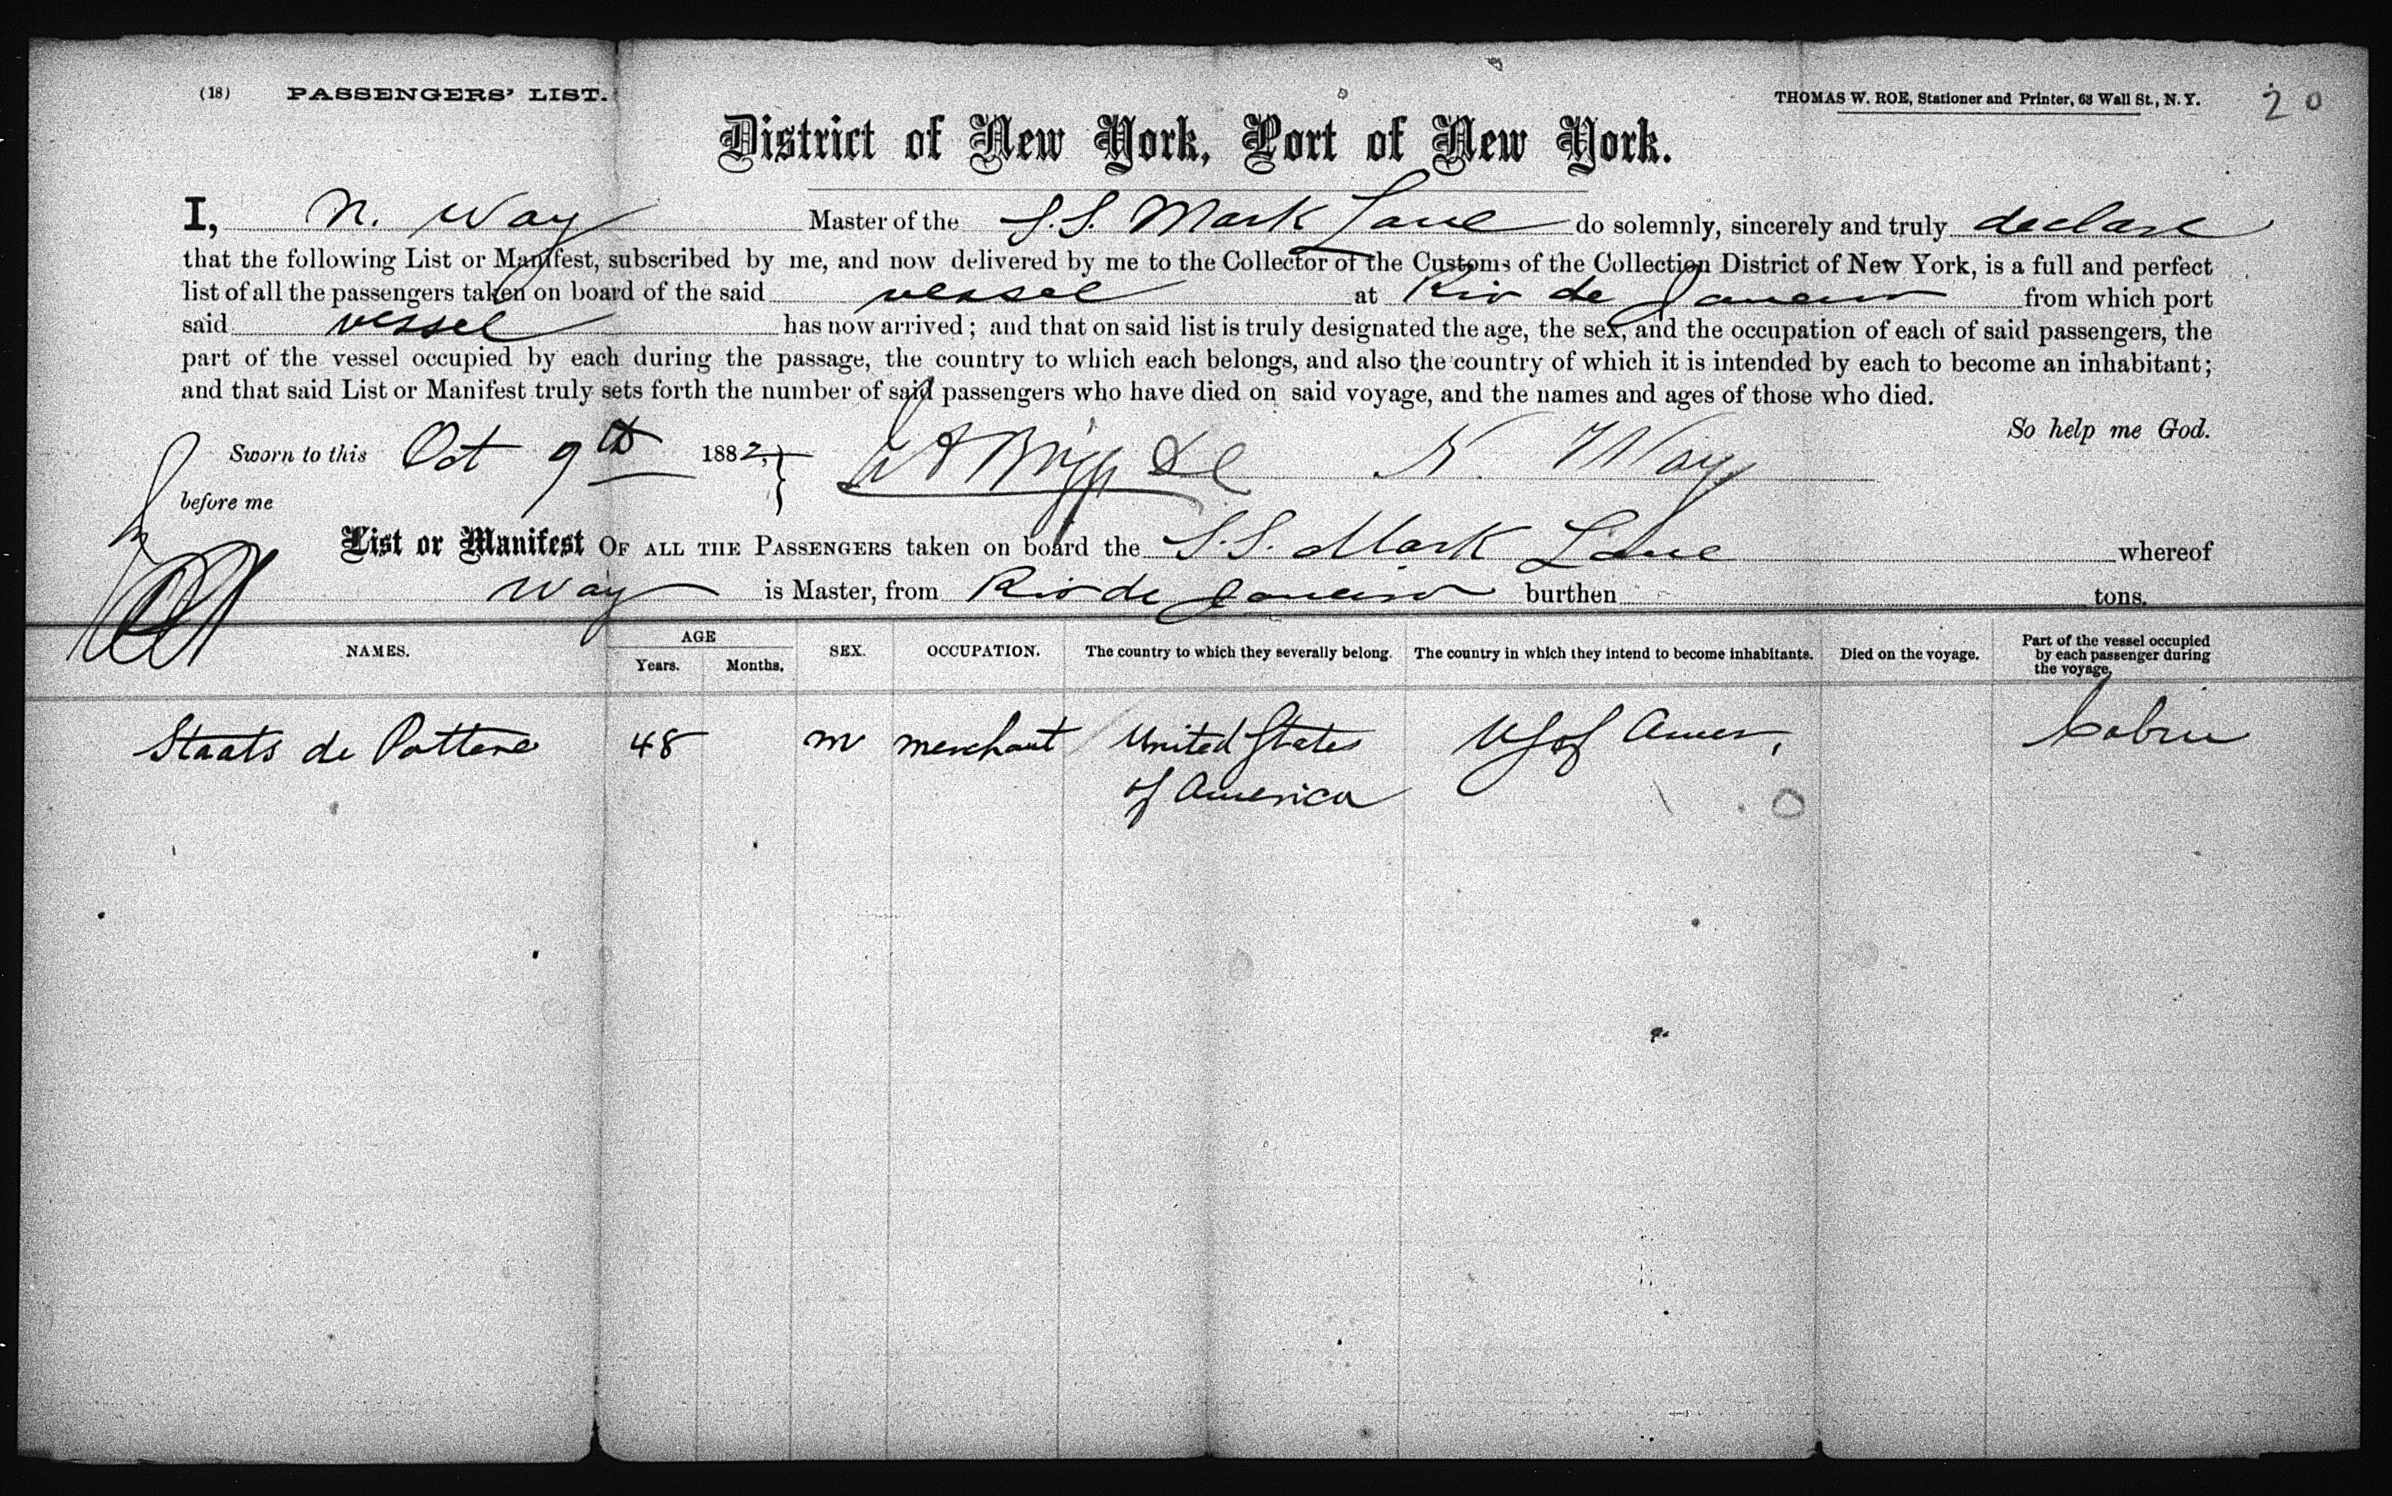 (18) PASSENGERS' LIST.
THOMAS W. ROE, Stationer and Printer, 63 Wall St., N. Y.
20
District of New York, Port of New York.
I, N. Way Master of the S.S. Mark Lane do solemnly, sincerely and truly declare
that the following List or Manifest, subscribed by me, and now delivered by me to the Collector of the Customs of the Collection District of New York, is a full and perfect
list of all the passengers taken on board of the said vessel at Rio de Janeiro from which port
said vessel has now arrived; and that on said list is truly designated the age, the sex, and the occupation of each of said passengers, the
part of the vessel occupied by each during the passage, the country to which each belongs, and also the country of which it is intended by each to become an inhabitant;
and that said List or Manifest truly sets forth the number of said passengers who have died on said voyage, and the names and ages of those who died.
So help me God.
Sworn to this Oct 9th 1882, N. Way
before me
List or Manifest OF ALL THE PASSENGERS taken on board the S.S. Mark Lane whereof
Way is Master, from Rio de Janeiro burthen tons.
NAMES. AGE Years. Months. SEX. OCCUPATION. The country to which they severally belong. The country in which they intend to become inhabitants. Died on the voyage. Part of the vessel occupied by each passenger during the voyage.
Staats de Pottere 48 m merchant United States U S of Amer, Cabin
of America